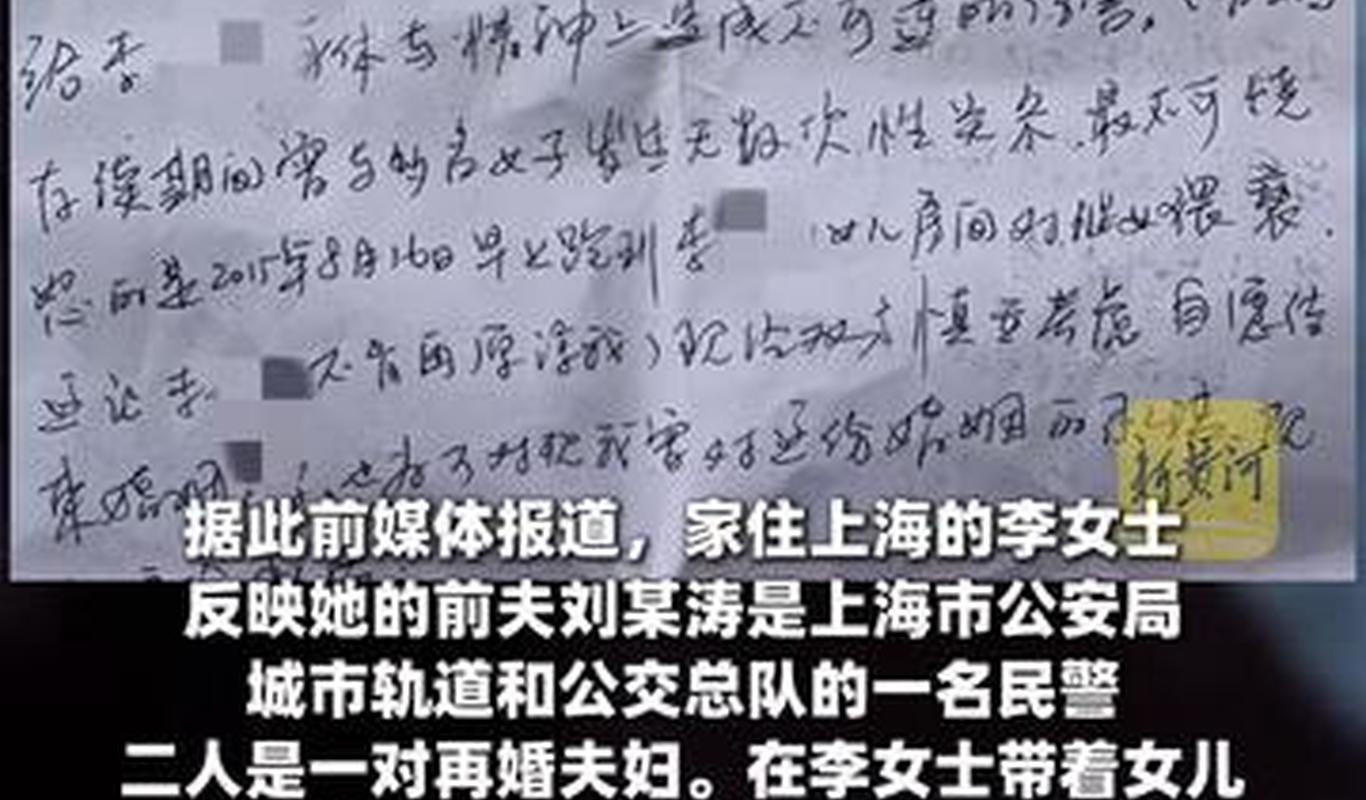 给李 身体与精神上造成不可逆的伤害,
存续期间曾与多名女子发生无数次性关系.最不可饶
恕的是2015年8月16日早上跑到李 女儿房间对继女猥亵.
还让李 不肯再原谅我)现经双方慎重考虑自愿结
束婚姻 对把我害 对这份婚姻的
新黄河
据此前媒体报道，家住上海的李女士
反映她的前夫刘某涛是上海市公安局
城市轨道和公交总队的一名民警
二人是一对再婚夫妇。在李女士带着女儿